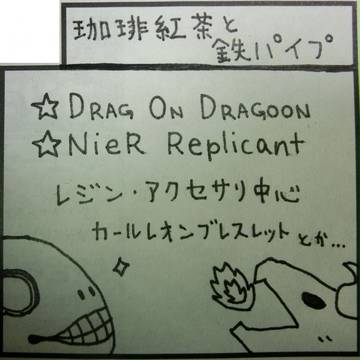 珈琲紅茶と
鉄パイプ
☆DRAG ON DRAGOON
☆NieR Replicant
レジン・アクセサリ中心
カールレオンブレスレットとか...